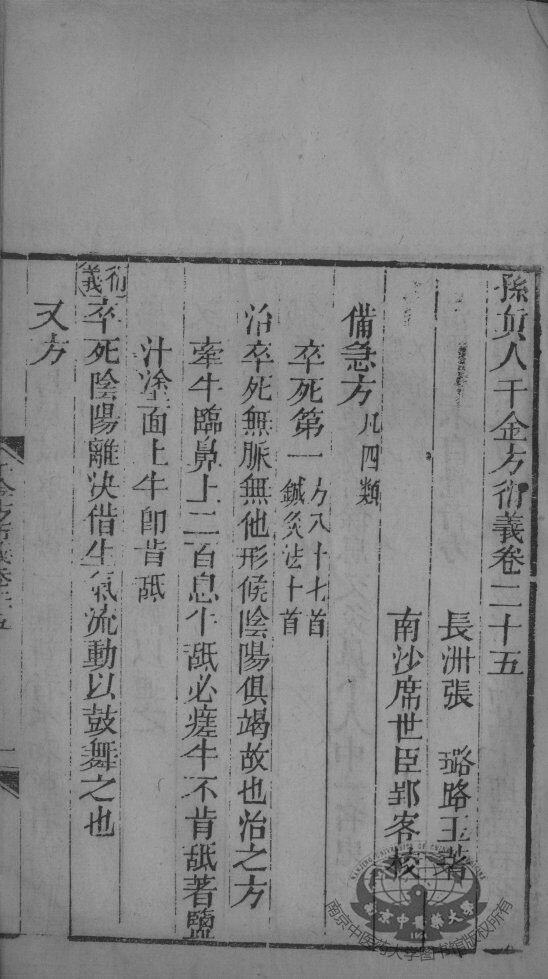 孫真人千金方衍義卷二十五
長洲張　璐路玉著
南沙席世臣郢客校
備急方 凡四類
卒死第一 方八十七首 鍼灸法十首
治卒死無脈無他形候陰陽俱竭故也治之方
牽牛臨鼻上二百息牛舐必瘥牛不肯舐著鹽
汁塗面上牛卽肯舐
衍義 卒死陰陽離决借生氣流動以鼓舞之也
又方
南京中醫藥大學
南京中医药大学图书馆版权所有